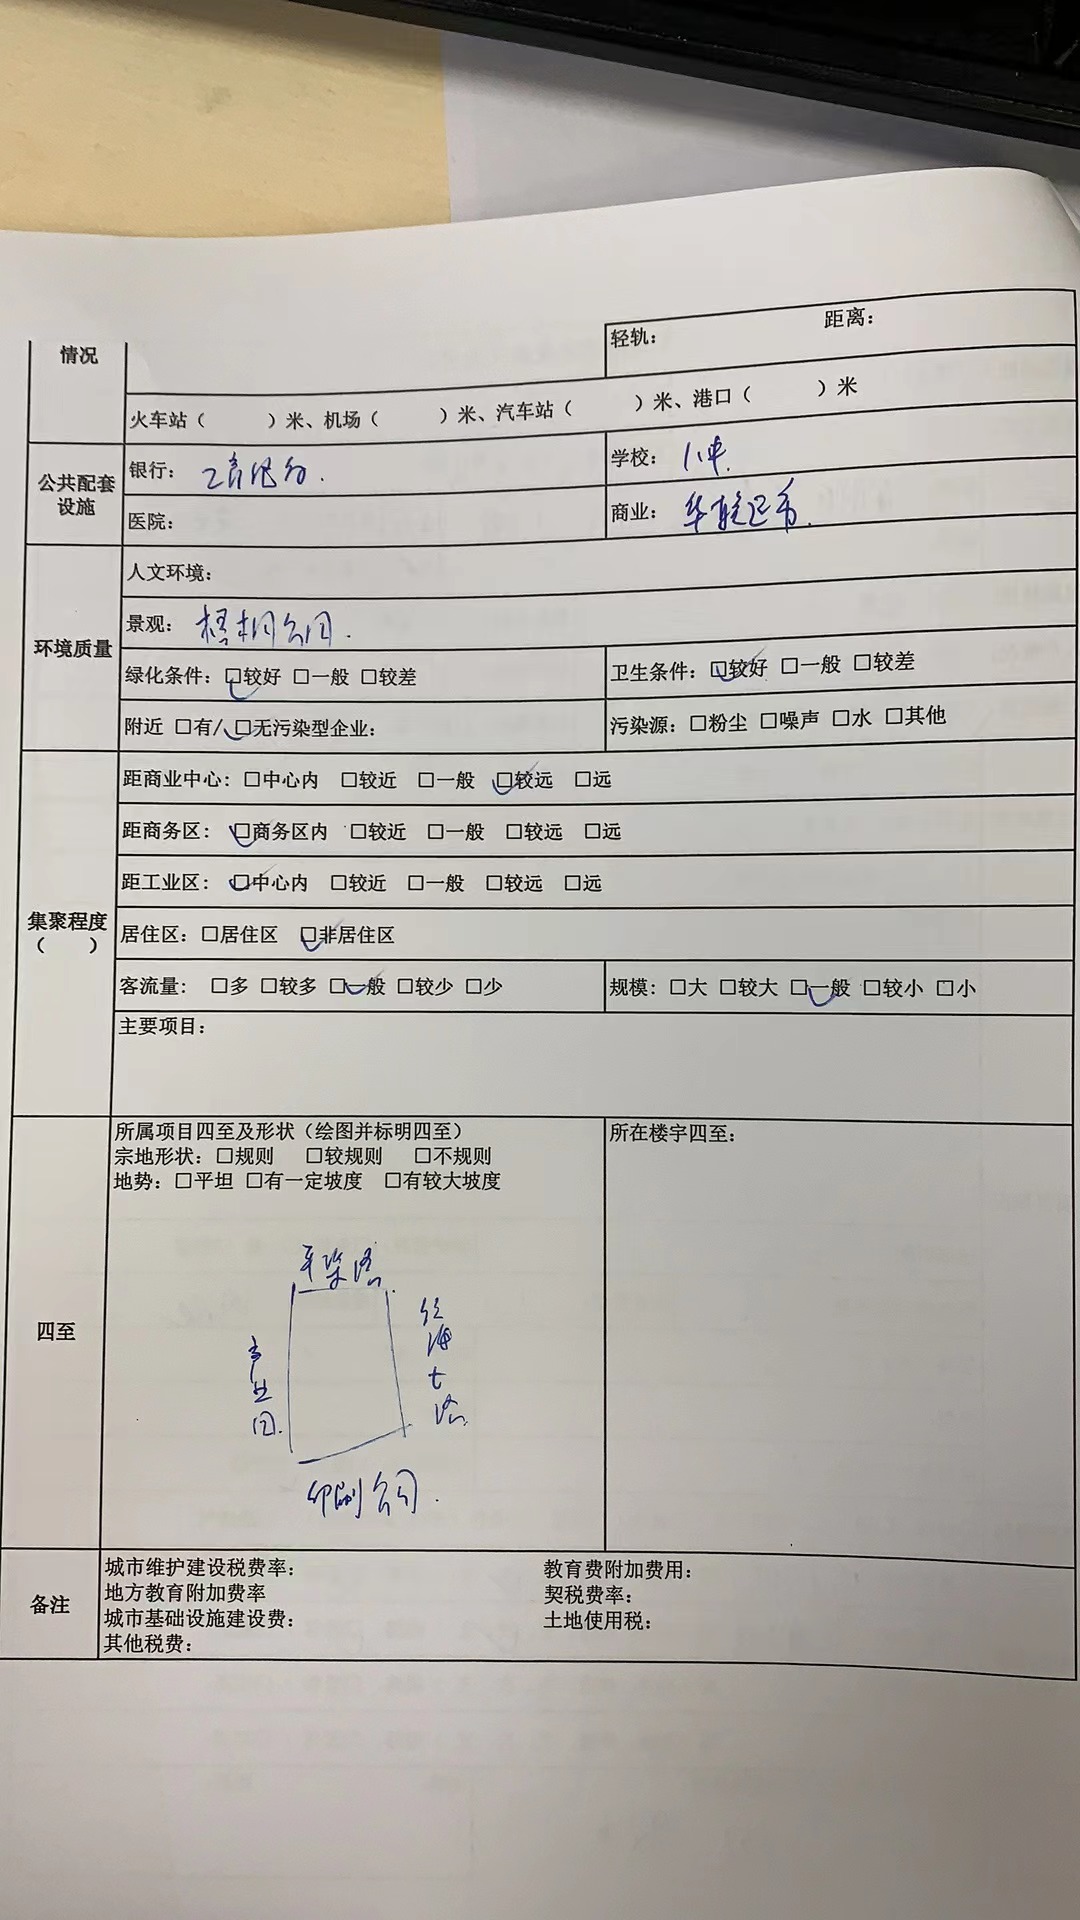 情况
轻轨： 距离：
火车站（ ）米、机场（ ）米、汽车站（ ）米、港口（ ）米
公共配套设施
银行：
学校：
医院：
商业： 华联超市.
环境质量
人文环境：
景观： 梧桐公园.
绿化条件：□较好 □一般 □较差
卫生条件：□较好 □一般 □较差
附近 □有/□无污染型企业：
污染源：□粉尘 □噪声 □水 □其他
集聚程度
（ ）
距商业中心：□中心内 □较近 □一般 □较远 □远
距商务区：□商务区内 □较近 □一般 □较远 □远
距工业区：□中心内 □较近 □一般 □较远 □远
居住区：□居住区 □非居住区
客流量：□多 □较多 □一般 □较少 □少
规模：□大 □较大 □一般 □较小 □小
主要项目：
四至
所属项目四至及形状（绘图并标明四至）
宗地形状：□规则 □较规则 □不规则
地势：□平坦 □有一定坡度 □有较大坡度
所在楼宇四至：
印刷公司.
备注
城市维护建设税费率： 教育费附加费用：
地方教育附加费率 契税费率：
城市基础设施建设费： 土地使用税：
其他税费：